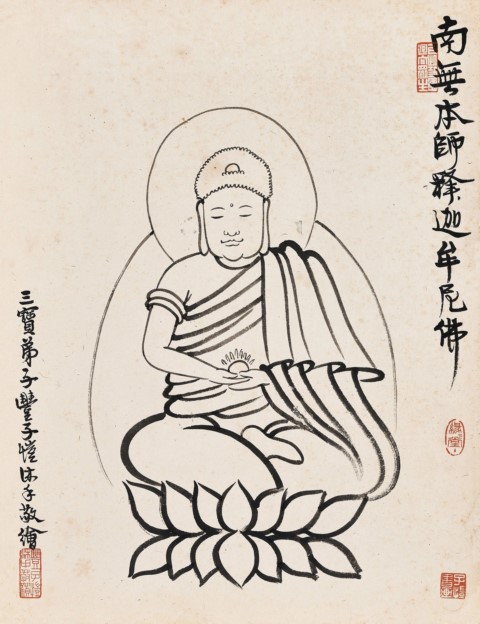 南無本師釋迦牟尼佛
三寶弟子豐子愷沐手敬繪